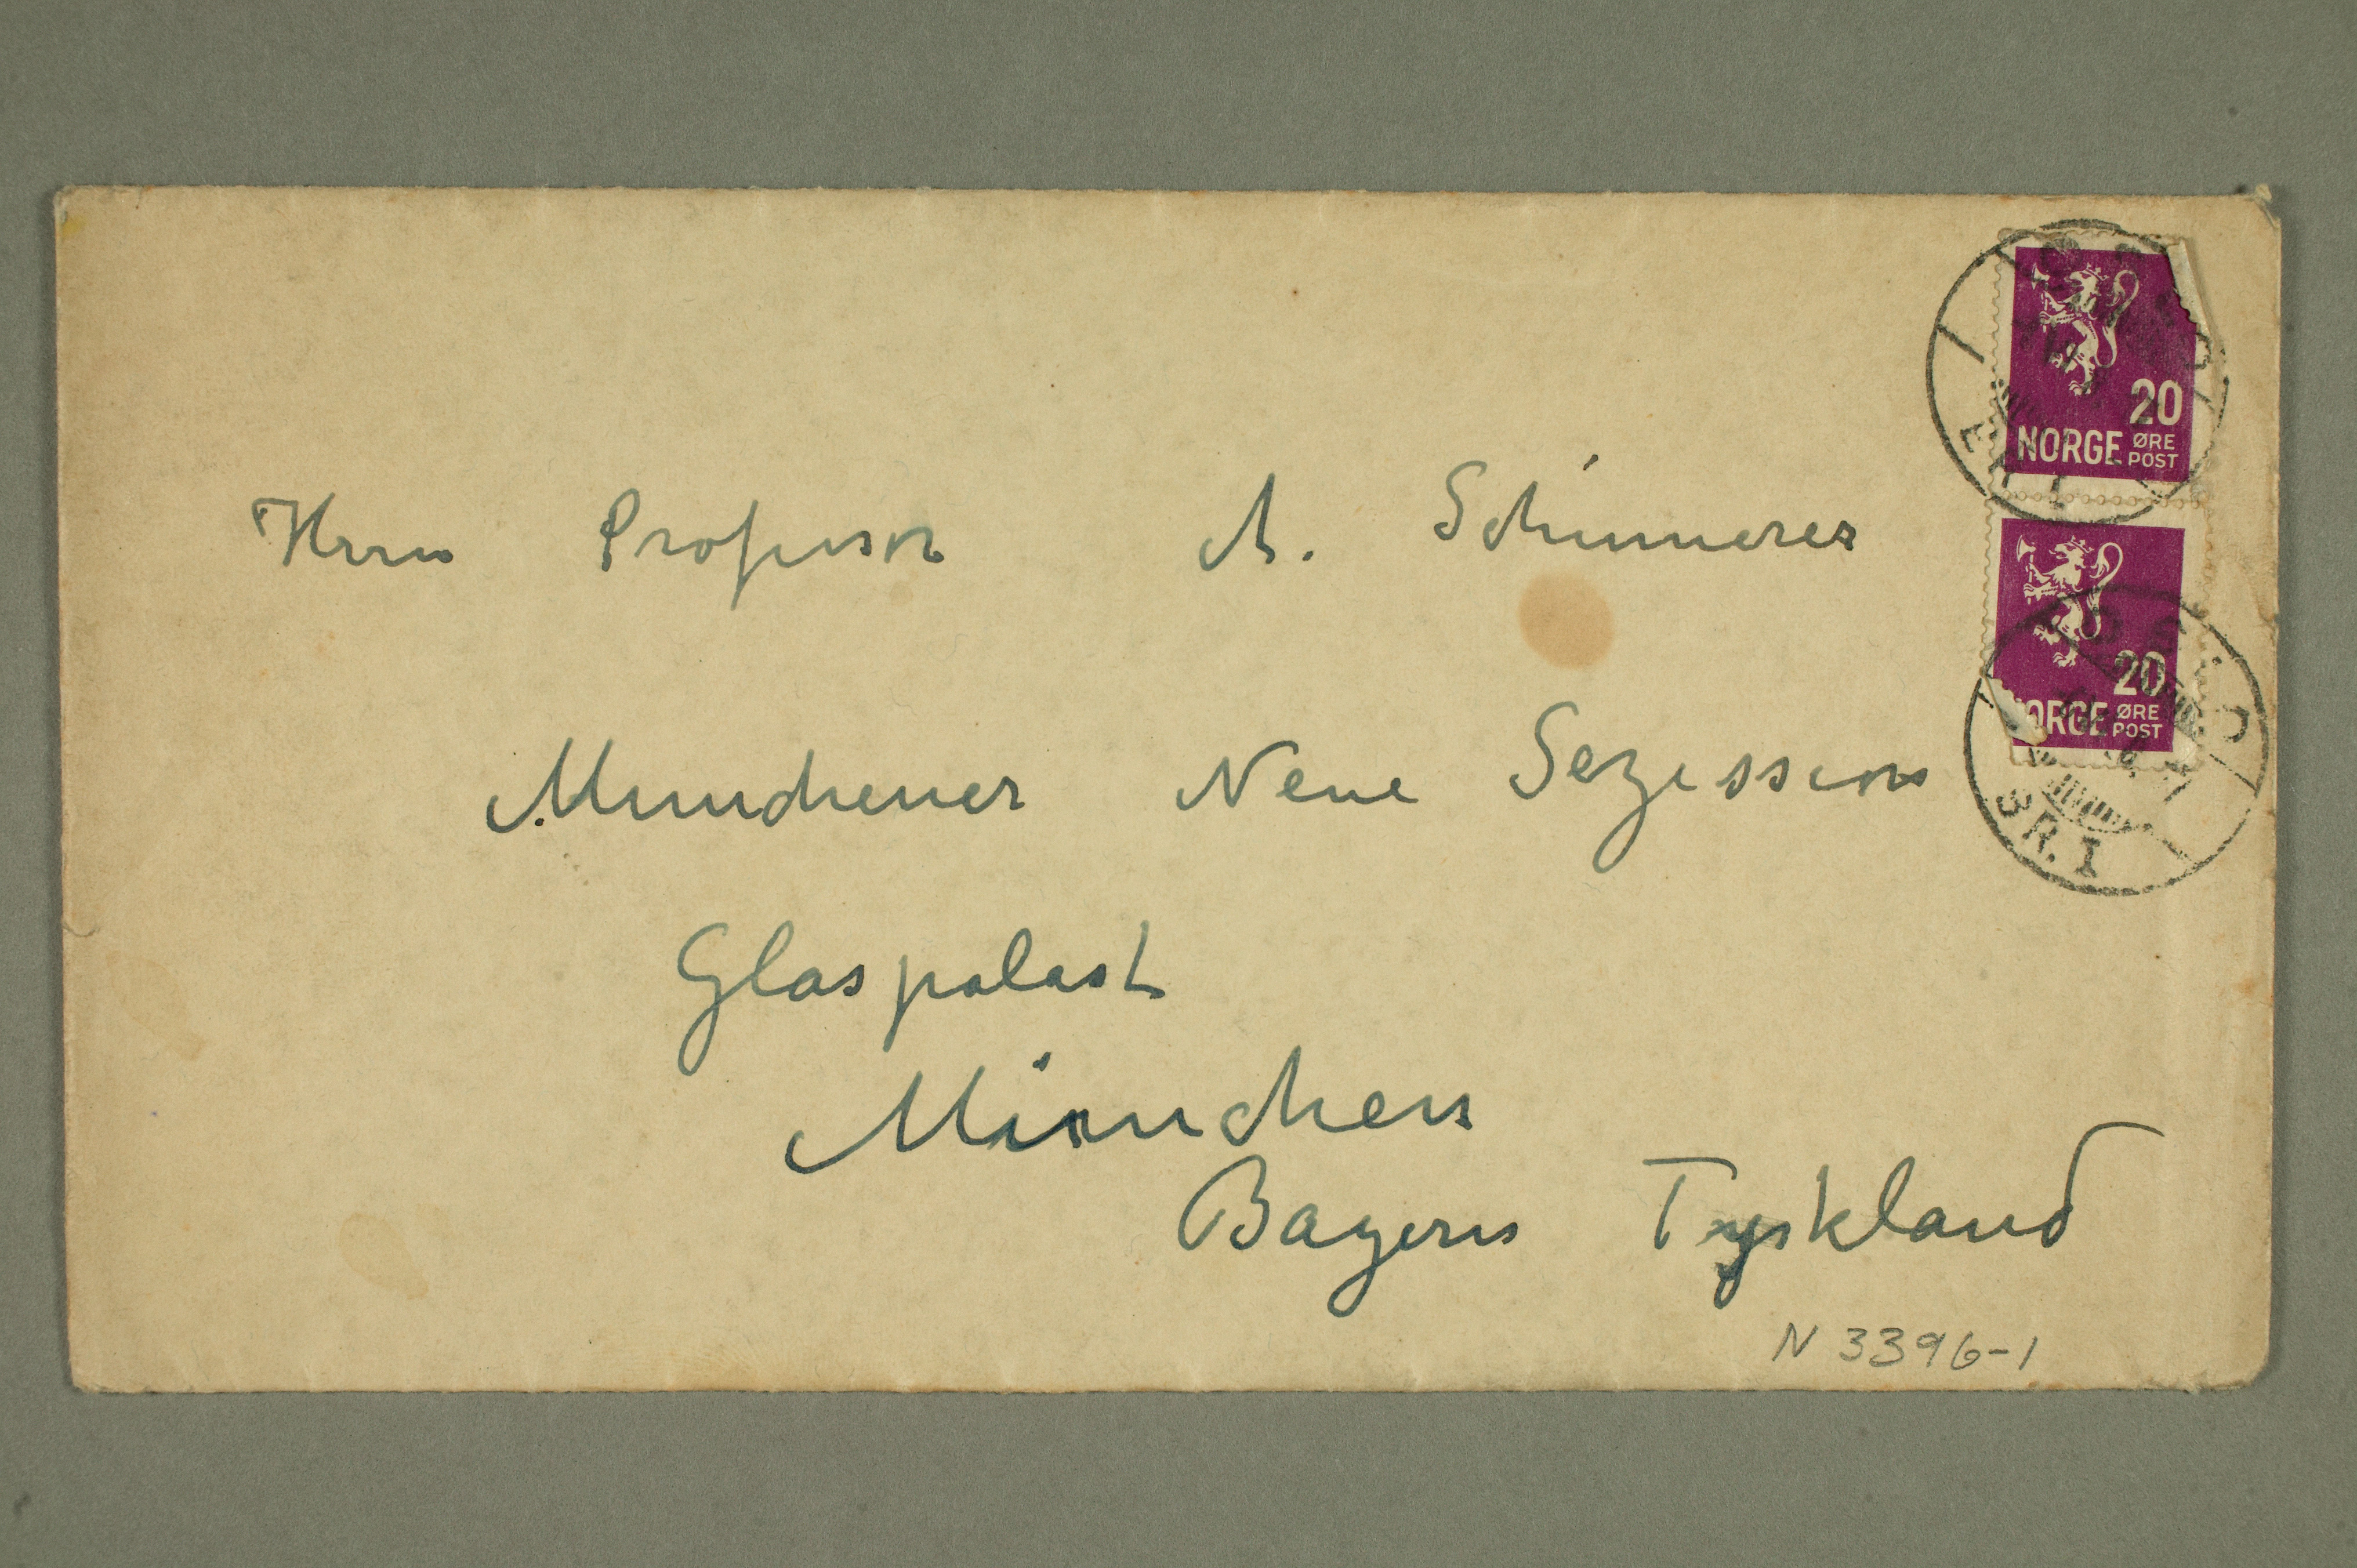 20
NORGE ØRE POST
20
NORGE ØRE POST
OSLO
BR. I
Herrn Professor A. Schinnerer
Munchener Neue Sezession
Glaspalast
München
Bayern Tyskland
N 3396-1